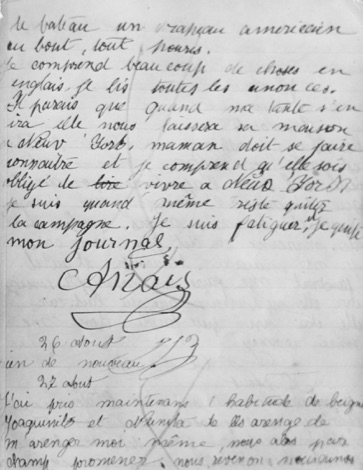 le bateau un drapeau americcien
au bout, tout pouris.
Je comprend beaucoup de choses en
englais, je lis toutes les anonces.
Il parais que quand ma tante s'en
ira elle nous laissera sa maison
a Neuw Yorb, maman doit se faire
connaitre et je comprend qu'elle sois
obligé de vivre a Neuw Yorb
je suis quand même triste quitte
la campagne. Je suis fatiguer, je quitte
mon journal,
Anaïs
26 aout
ien de nouveau
27 aout
J'ai pris maintenant l'habitude de
Joaquinito et de les arenge de
m'arenger moi même, nous alons par
champ promener, nous revenon